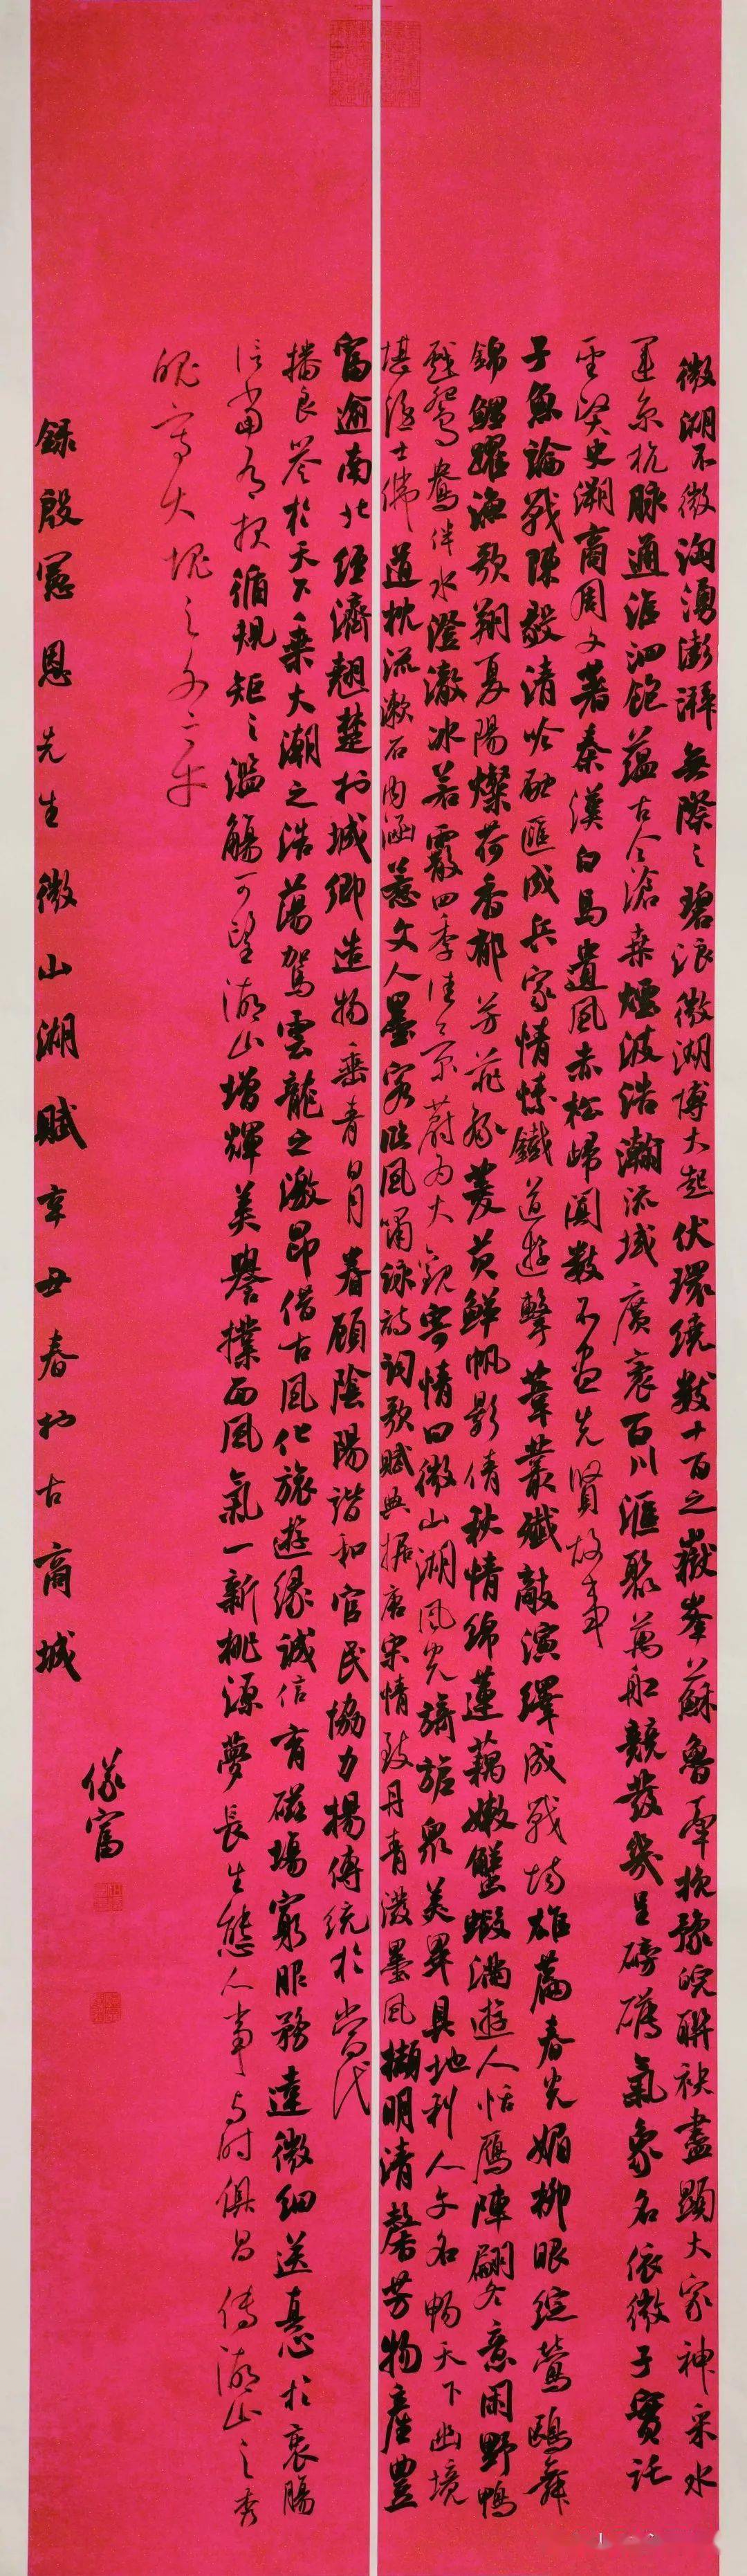 微湖不微洶湧澎湃無際之碧浪微湖博大起伏環繞數十百之嶽峯蘇魯牽挽豫皖聯袂盡顯大家神采水
運京杭脉通沂泗飽蘊古今滄桑煙波浩瀚流域廣袤百川滙聚萬舩競發幾呈磅礡氣象名依微子實託
聖賢史溯商周文著秦漢白馬遺風赤松歸闕數不盡先賢故事
子魚論戰陳毅清吟融匯成兵家情愫鐵道遊擊葦叢殲敵演繹成戰場雄篇春光媚柳眼綻鶯鷗舞
錦鯉躍漁歌翔夏陽燦荷香郁芳菲菱芡鮮帆影倩秋情綿蓮藕嫩蟹蝦滿遊人恬鴈陣翩冬意閑野鴨
戲鴛鴦伴水澄澈冰若霰四季佳景蔚為大觀寄情曰微山湖風光旖旎衆美畢具地利人文名暢天下幽境
堪隱士佛道枕流漱石內涵惹文人墨客臨風嘯詠詩詞歌賦典據唐宋情致丹青潑墨風擷明清馨芳物產豊
富逾南北經濟翹楚於城鄉造物垂青日月眷顧陰陽諧和官民協力揚傳統於當代
播良譽於天下乘大潮之浩蕩駕雲龍之激昂借古風化旅遊緣誠信育磁場窮服務達微細送意於衷腸
循規矩之濫觴可望湖山增輝美譽撲面風氣一新桃源夢長生態人事与時俱昌傳湖山之秀
大塊之
錄殷憲恩先生微山湖賦辛丑春於古商城
富